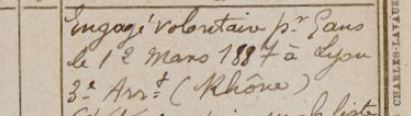 Engagé volontaire pr 5 ans
le 12 Mars 1887 à Lyon
3e Arrt (Rhône)
liste
CHARLES-LAVAUZ